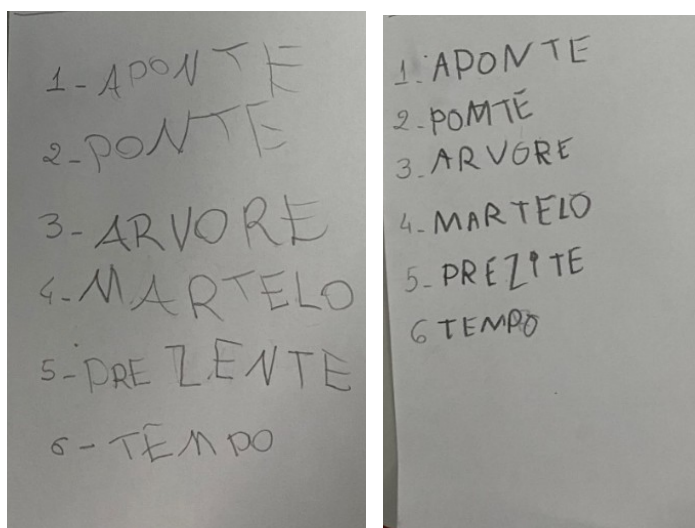 1-APONTE
2-PONTE
3-ARVORE
4-MARTELO
5-PREZENTE
6-TEMPO
1. APONTE
2-POMTE
3. ARVORE
4-MARTELO
5-PREZITE
6 TEMPO